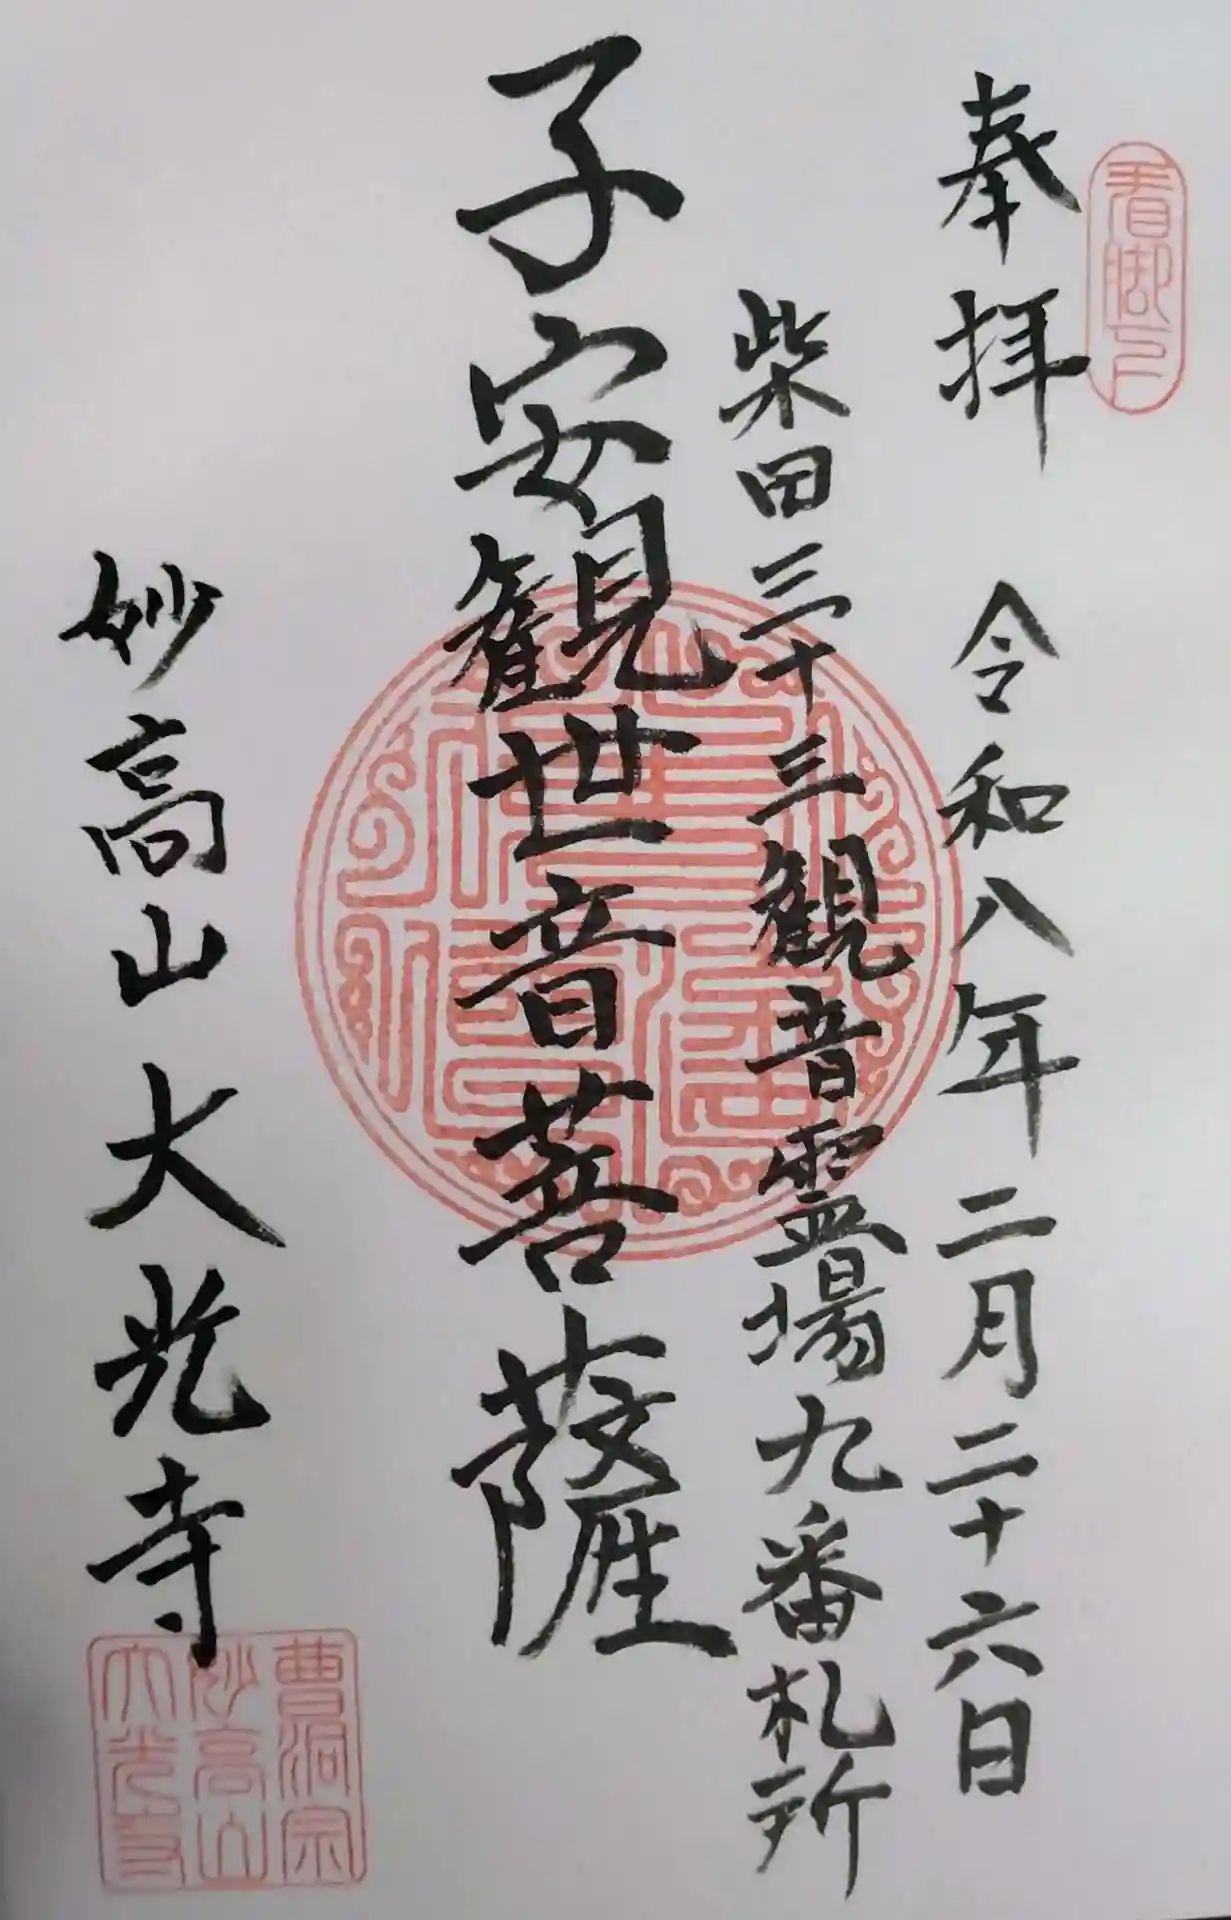 看脚下
奉拝 令和八年二月二十六日
柴田三十三観音霊場九番札所
子安観世音菩薩
妙高山大光寺
曹洞宗
妙高山
大光寺